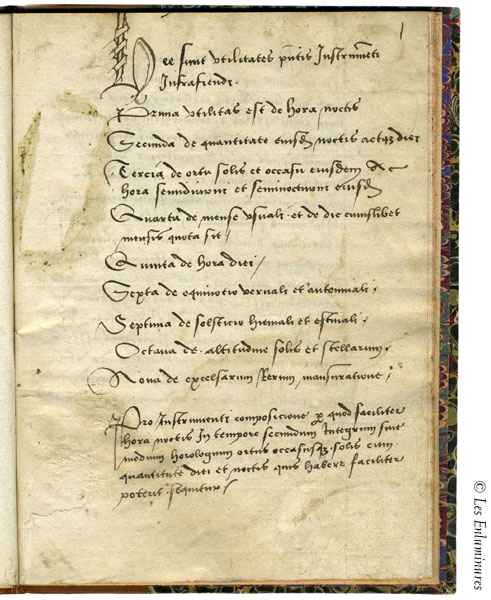 1
Hee sunt vtilitates pntis Instrumeti
Infrafiendi.
Prima vtilitas est de hora noctis
Secunda de quantitate eiusdm noctis actqz diei
Tercia de ortu solis et occasu eiusdem Ac
hora semidiurni et seminocturni eiusdm
Quarta de mense vsuali · et de die cuiuslibet
mensis quota sit /
Quinta de hora diei /
Sexta de equinotio vernali et autonniali ·
Septima de solsticio hiemali et estiuali ·
Octaua de altitudine solis et stellarum ·
Nona de excelsarum Rerum mansuratione ·
Pro Instrumenti composicione p quod faciliter
hora noctis In tempore secundum Integrum siue
medium horologium ortus occasusqz solis cum
quantitate diei et noctis quis habere faciliter
poterit · sequitur /
© Les Enluminures